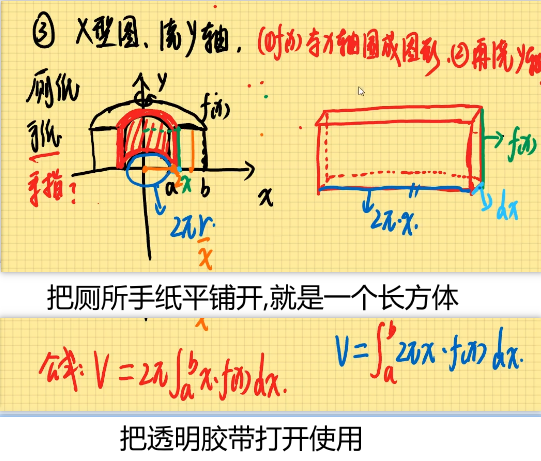 ③ X型图、绕y轴, (①f(x)与x轴围成图形,②再绕y轴
厕纸
手纸
手指?
y
f(x)
a x b
x
2πr
x
f(x)
dx
2π·x
把厕所手纸平铺开,就是一个长方体
公式: V = 2π∫ₐᵇ x·f(x)dx.
V = ∫ₐᵇ 2πx·f(x)dx.
把透明胶带打开使用